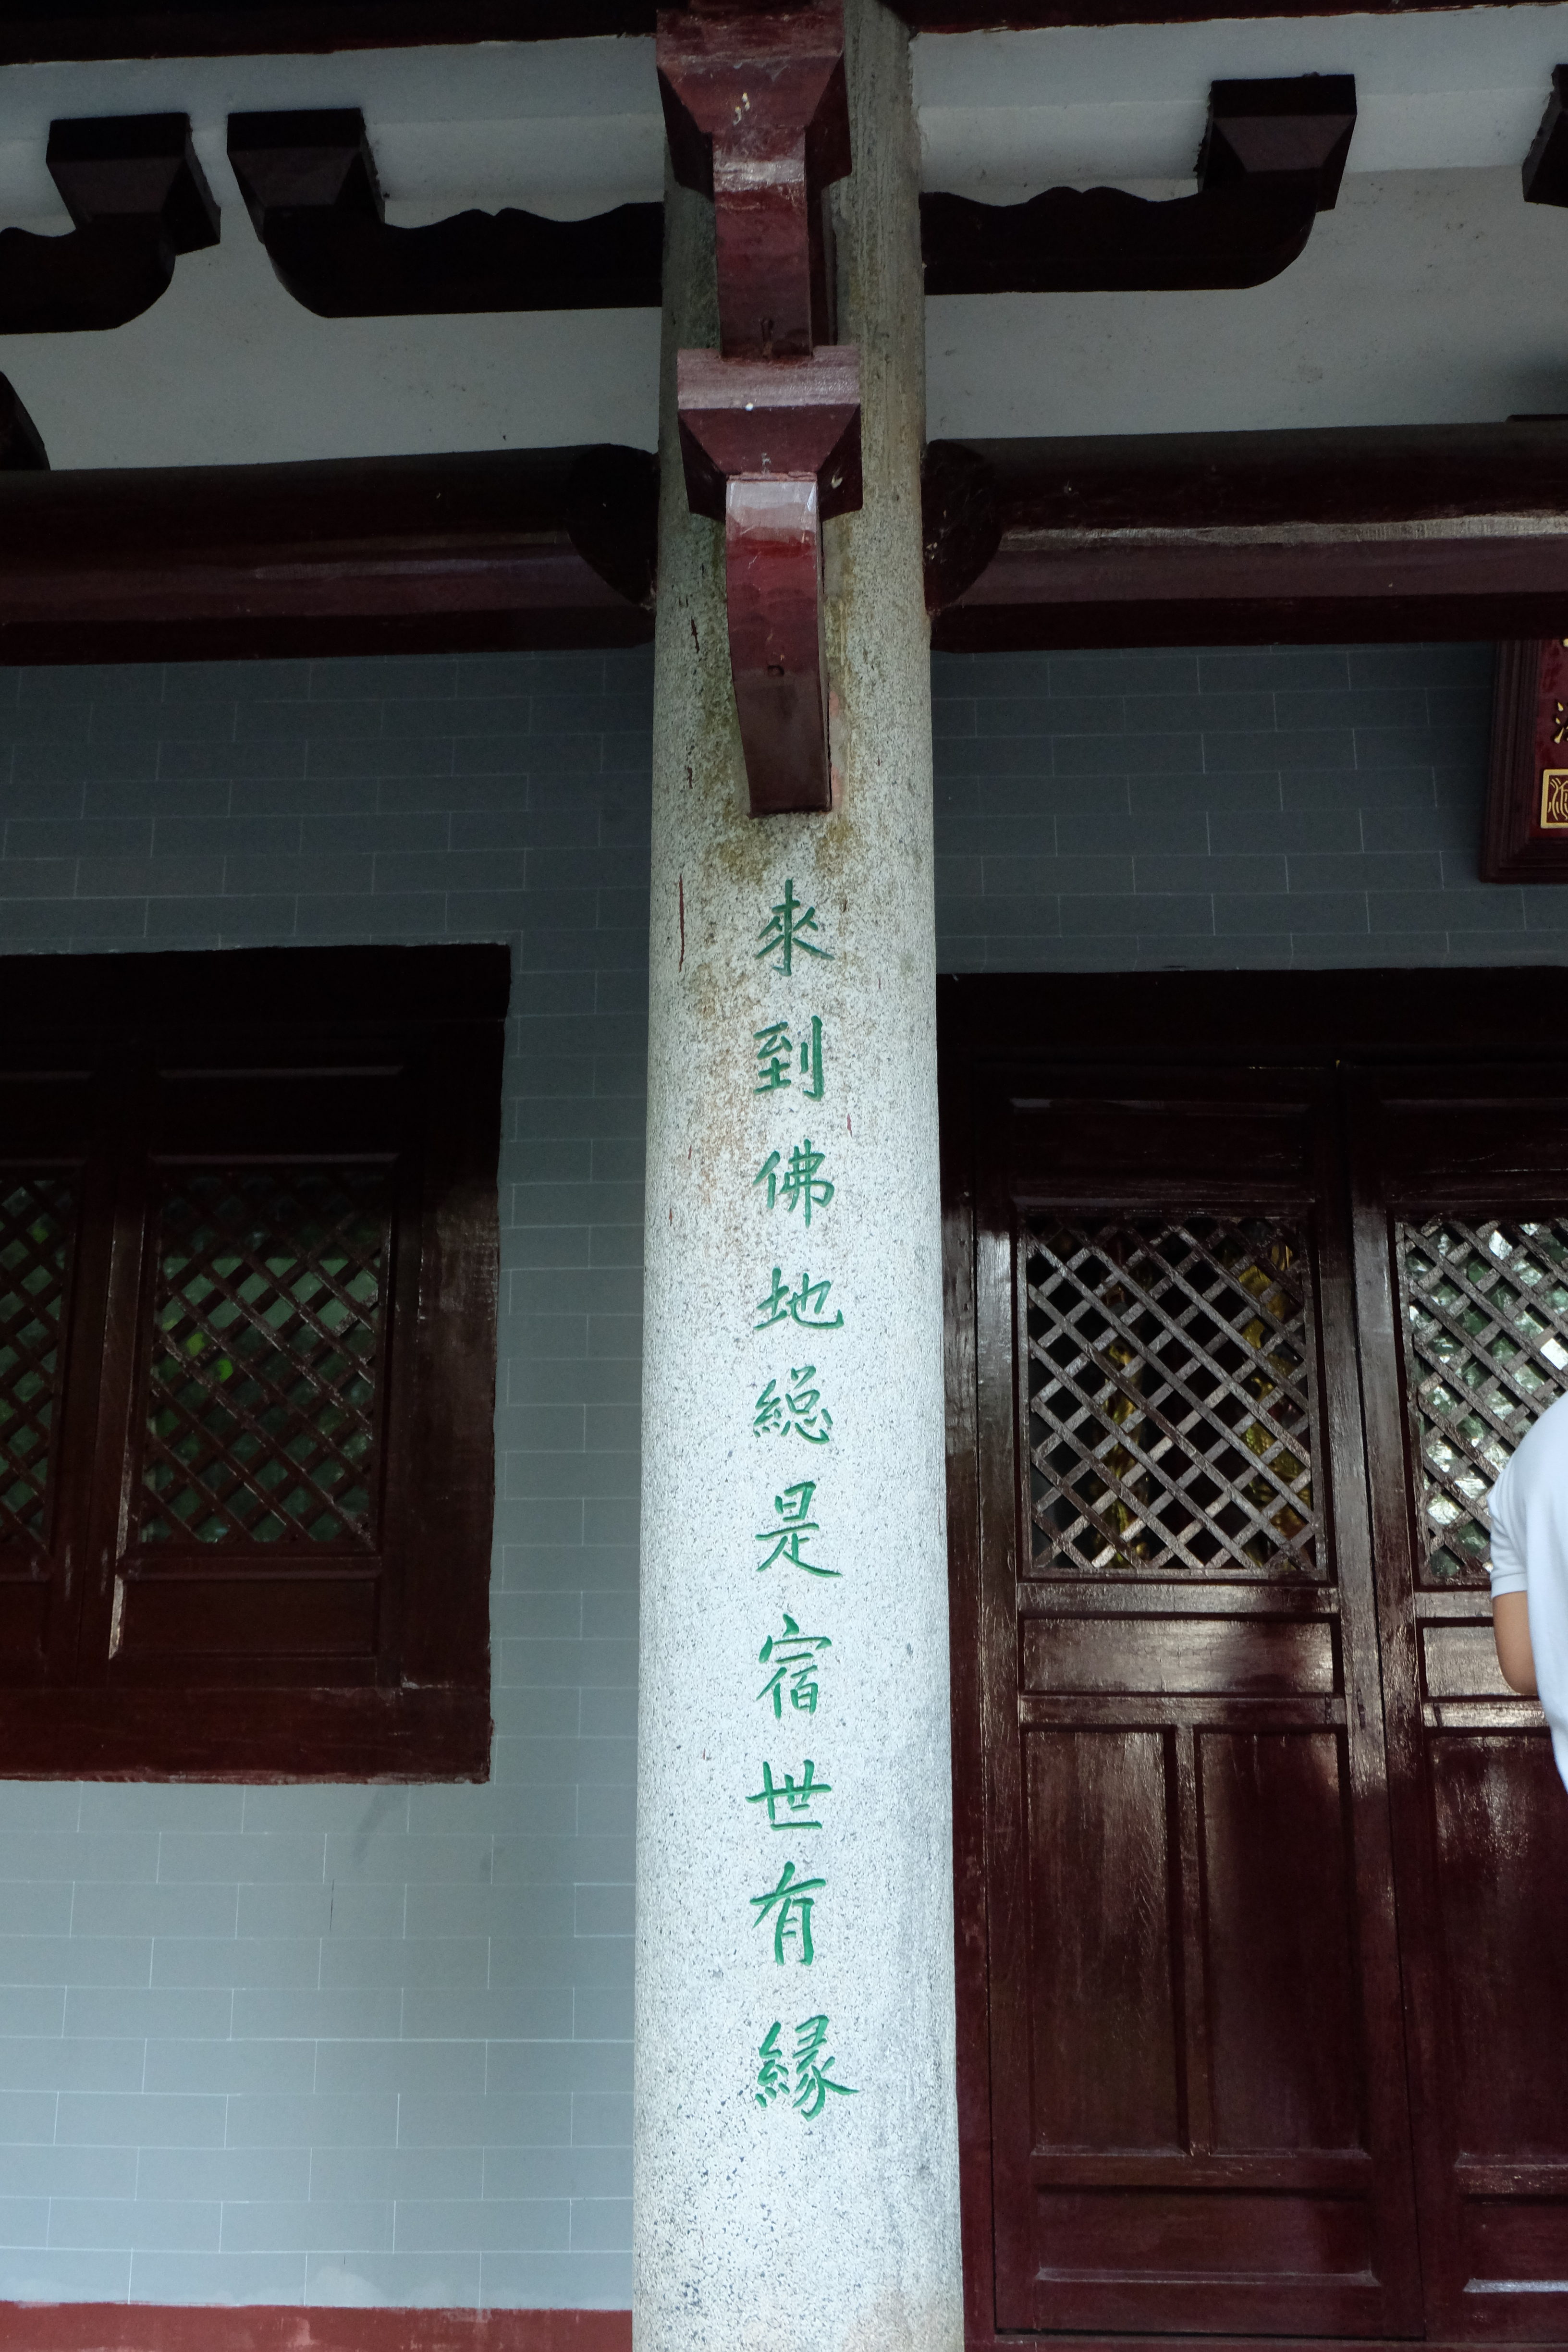 來到佛地総是宿世有緣